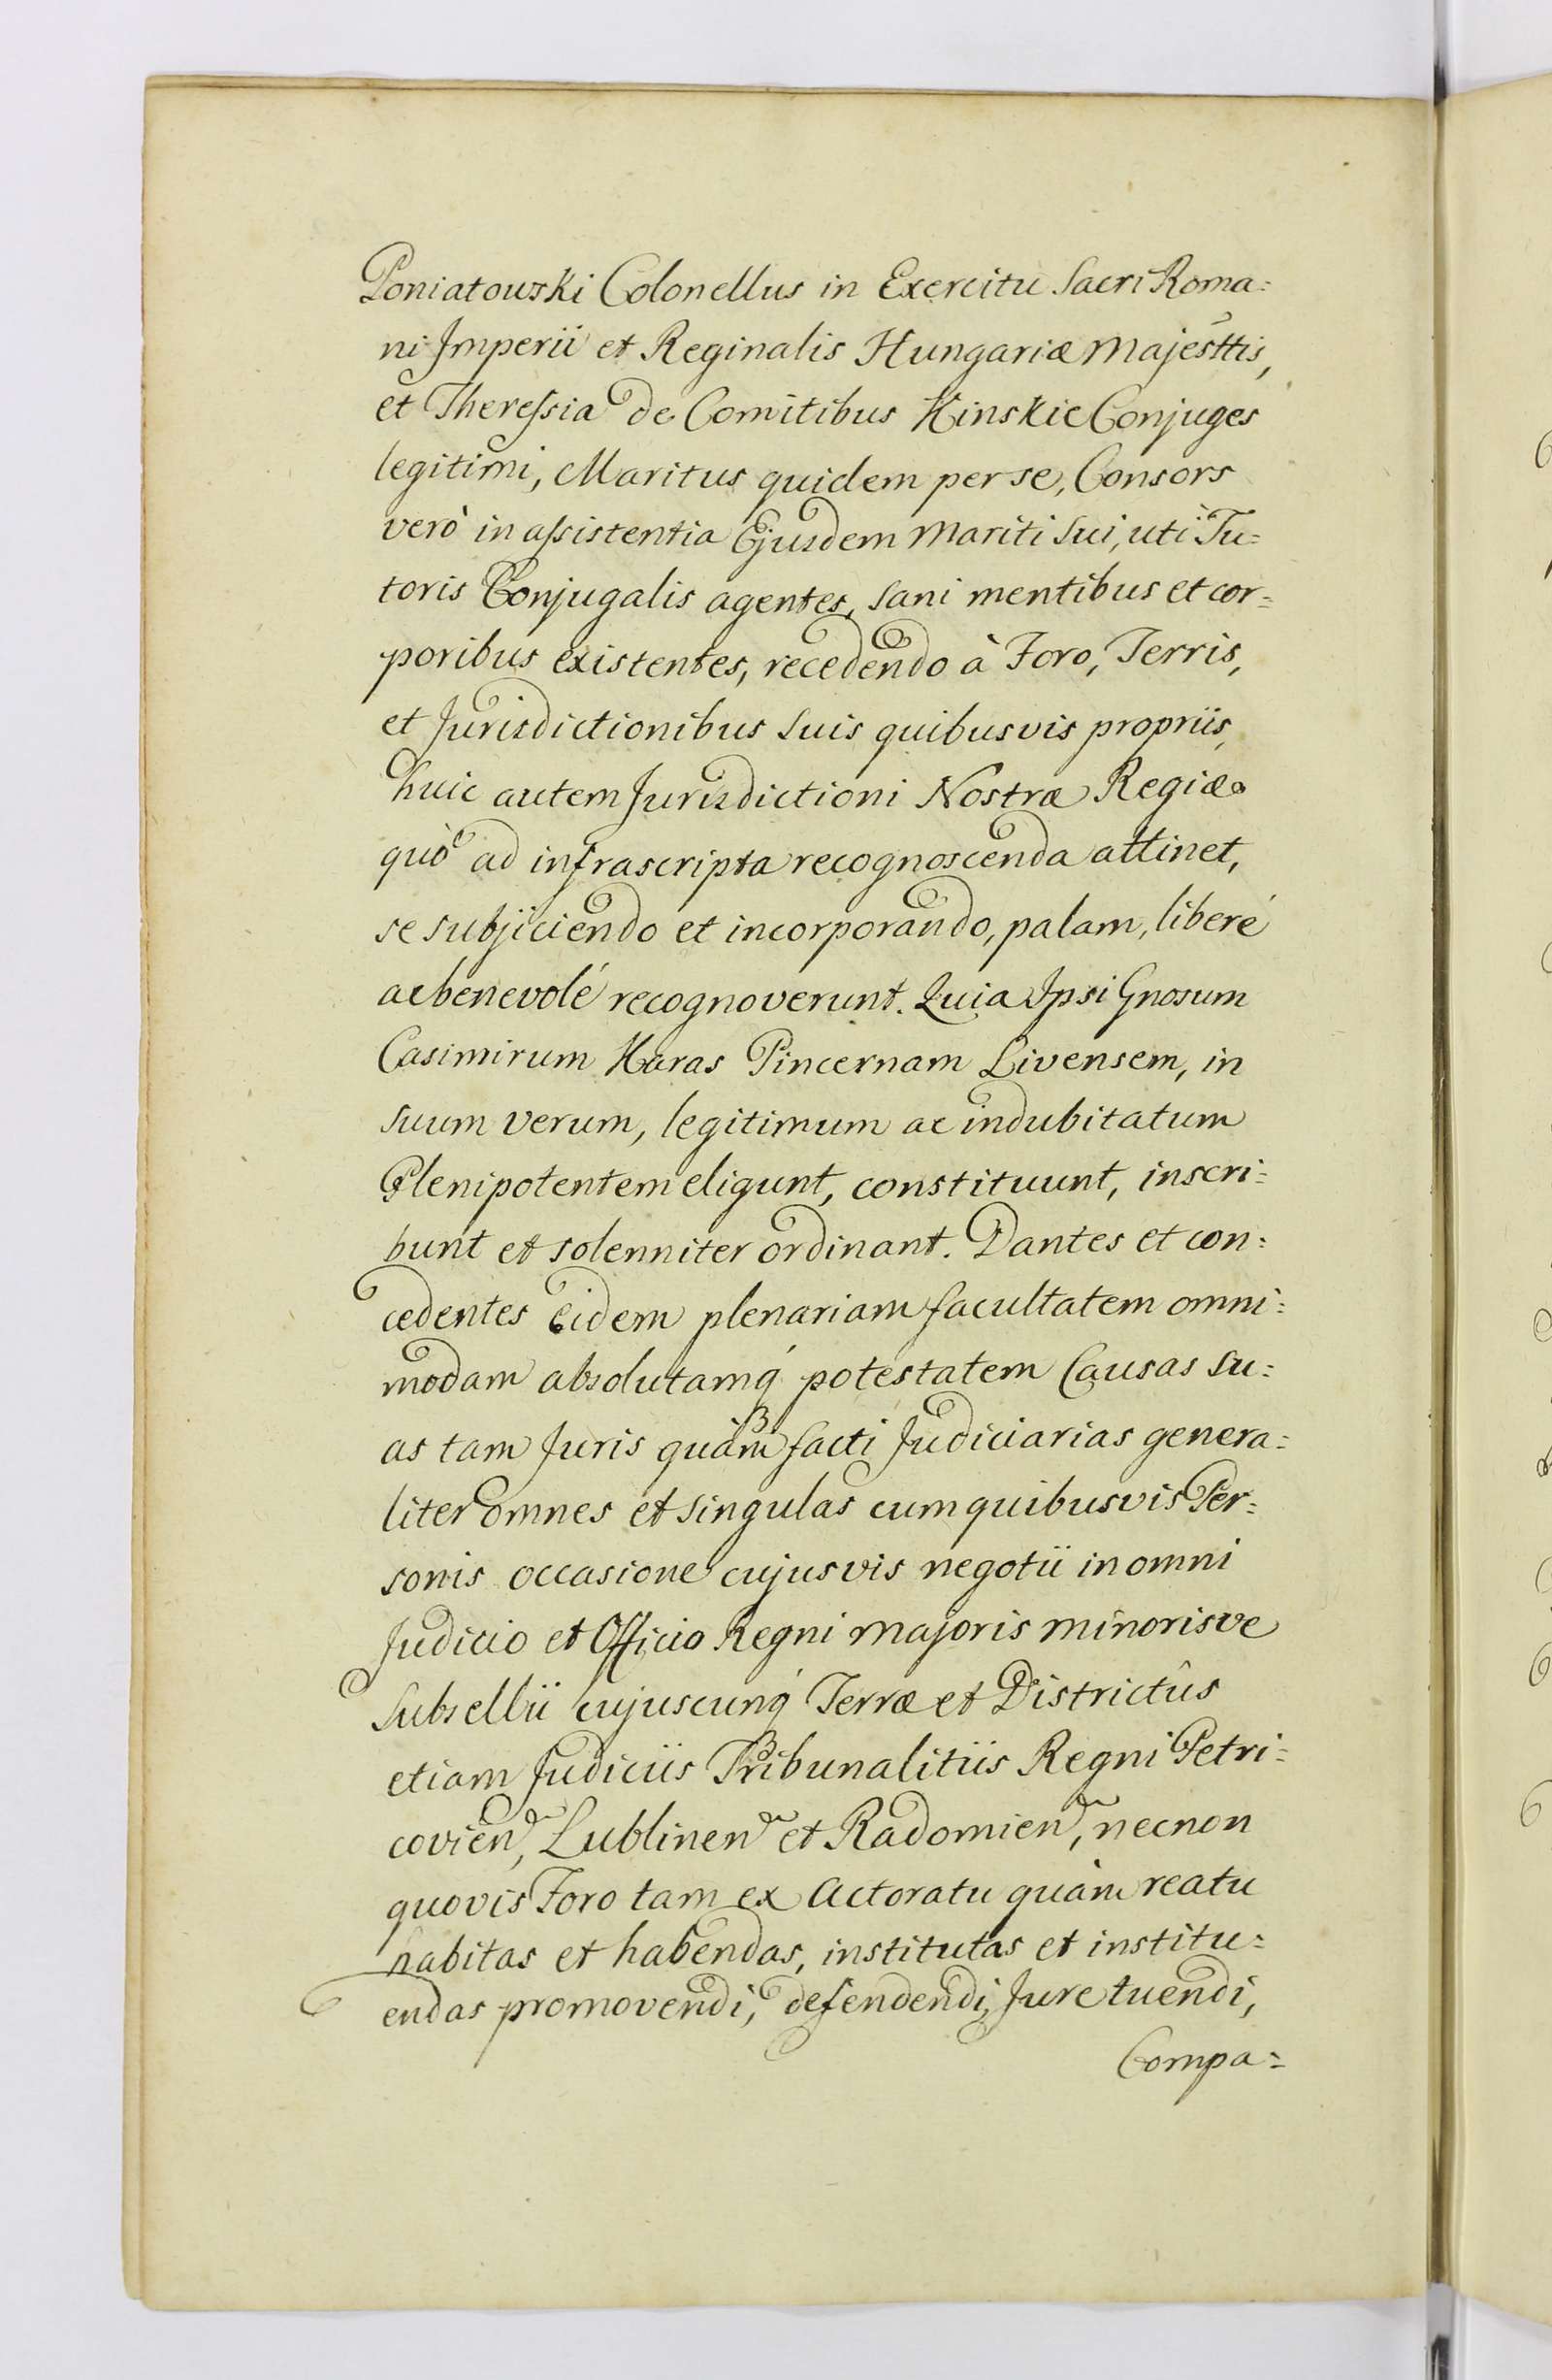 Poniatowski Colonellus in Exercitu Sacri Roma=
ni Imperii et Reginalis Hungariæ Majesttis,
et Theressia de Comitibus Kinskie Conjuges
legitimi, Maritus quidem per se, Consors
verò in assistentia Ejusdem Mariti Sui, uti Tu=
toris Conjugalis agentes, Sani mentibus et cor=
poribus existentes, recedendo à Foro, Terris,
et Jurisdictionibus Suis quibusvis propriis,
huic autem Jurisdictioni Nostræ Regiæ
quò ad infrascripta recognoscenda attinet,
se subjiciendo et incorporando, palam, liberé
ac benevolé recognoverunt. Quia Ipsi Gnosum
Casimirum Karas Pincernam Livensem, in
suum verum, legitimum ac indubitatum
Plenipotentem eligunt, constituunt, inscri=
bunt et solenniter ordinant. Dantes et con=
cedentes Eidem plenariam facultatem omni=
modam absolutamq́ potestatem Causas Su=
as tam Juris quàm facti Judiciarias genera=
liter omnes et singulas cum quibusvis Per=
sonis occasione cujusvis negotii in omni
Judicio et Officio Regni Majoris Minorisve
Subsellii cujuscunq́ Terræ et Districtûs
etiam Judiciis Tribunalitiis Regni Petri=
covien, Lublinen et Radomien, necnon
quovis Foro tam ex Actoratu quàm reatu
habitas et habendas, institutas et institu=
endas promovendi, defendendi, Jure tuendi,
Compa=